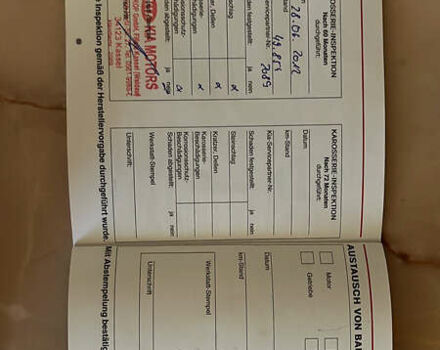 KAROSSERIE-INSPEKTION
Nach 60 Monaten
durchgeführt:
28.06.2012
49.851
Kia-Servicepartner-Nr.
7089
Schaden festgestellt:
ja nein
Steinschlag
Kratzer, Dellen
Karosserie-
Beschädigungen
Korrosionsschutz-
Beschädigungen
Schaden abgestellt:
ja nein
KIA MOTORS
34123 Kassel
KAROSSERIE-INSPEKTION
Nach 72 Monaten
durchgeführt:
Datum
km-Stand
Kia-Servicepartner-Nr.
Schaden festgestellt:
ja nein
Steinschlag
Kratzer, Dellen
Karosserie-
Beschädigungen
Korrosionsschutz-
Beschädigungen
Schaden abgestellt:
ja nein
Werkstatt-Stempel
Unterschrift:
Inspektion gemäß der Herstellervorgabe durchgeführt wurde.
AUSTAUSCH VON
Motor
Getriebe
Datum
km-Stand
Werkstatt-Stempel
Unterschrift
Mit Abstempelung